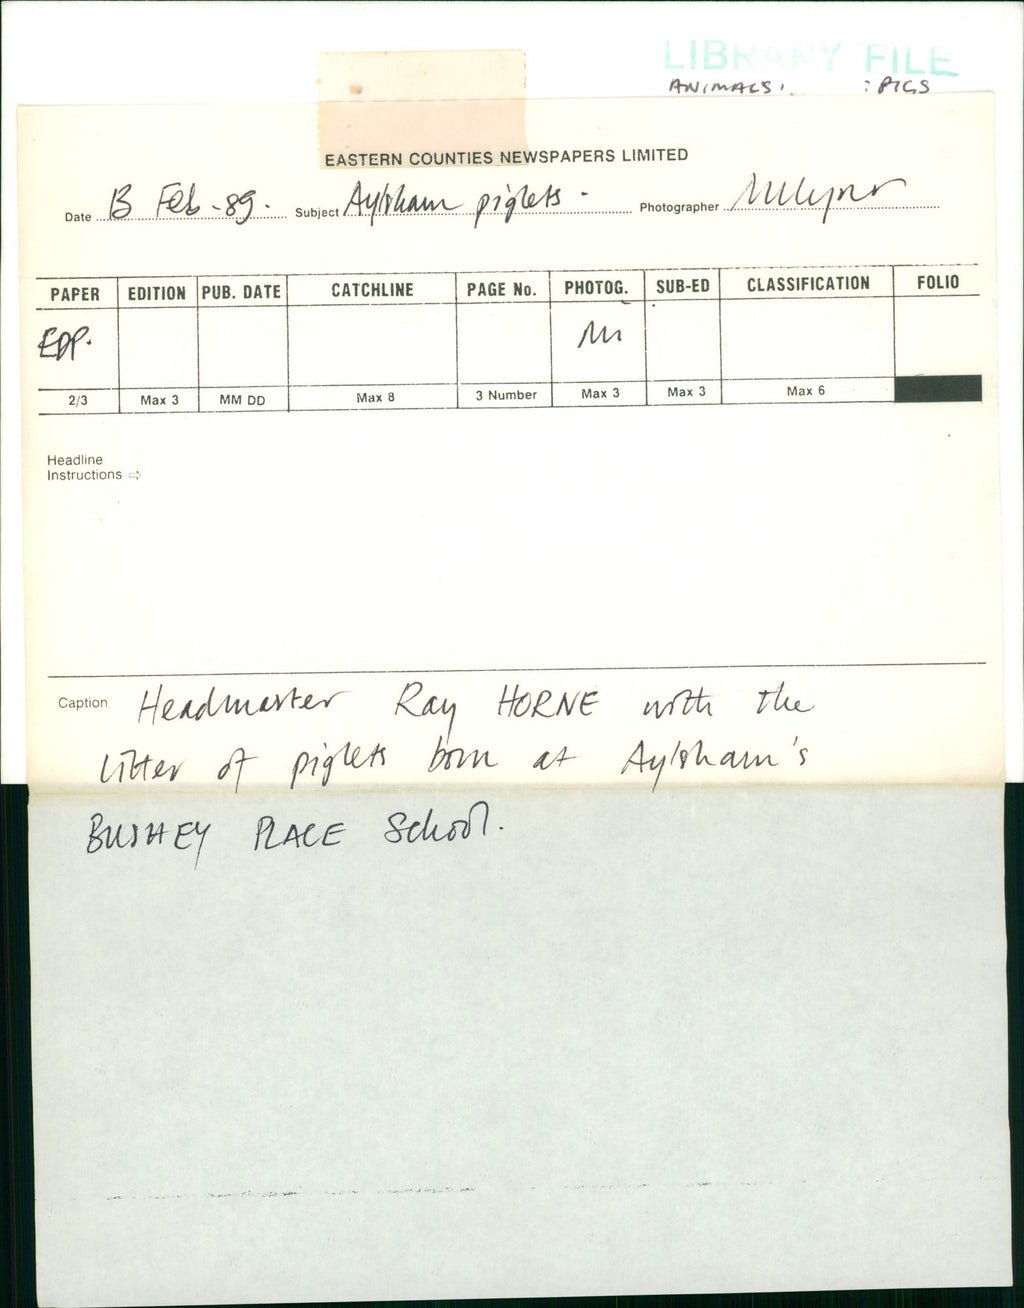 LIBRARY FILE
ANIMALS: : PIGS
EASTERN COUNTIES NEWSPAPERS LIMITED
Date 13 Feb-89. Subject Aylsham piglets. Photographer
PAPER EDITION PUB. DATE CATCHLINE PAGE No. PHOTOG. SUB-ED CLASSIFICATION FOLIO
EDP.
2/3 Max 3 MM DD Max 8 3 Number Max 3 Max 3 Max 6
Headline
Instructions ⇨
Caption Headmaster Ray HORNE with the
litter of piglets born at Aylsham's
BUSHEY PLACE School.